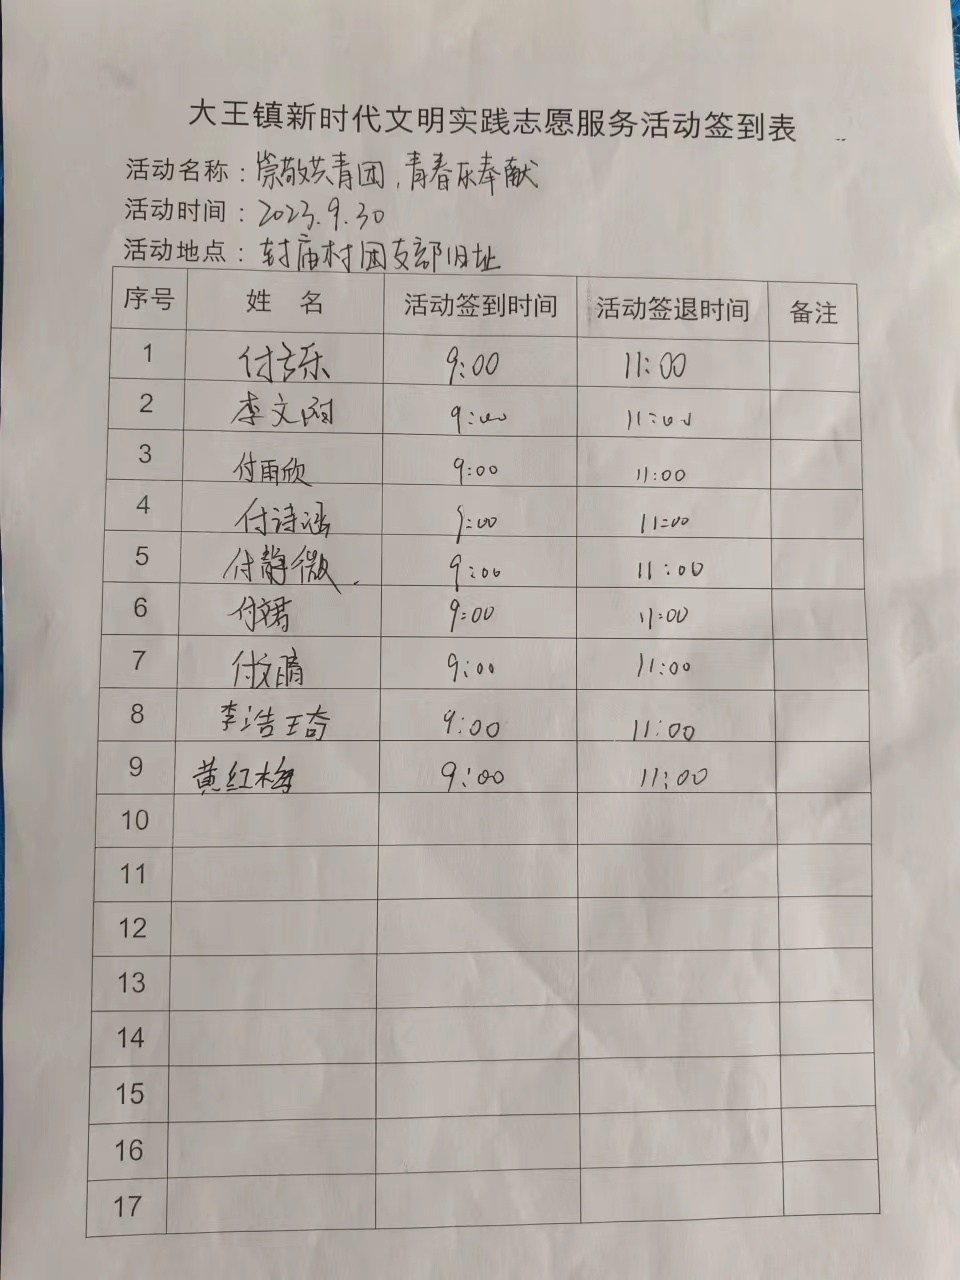 大王镇新时代文明实践志愿服务活动签到表
活动名称：崇敬共青团，青春乐奉献
活动时间：2023.9.30
活动地点：封庙村团支部旧址
序号 姓 名 活动签到时间 活动签退时间 备注
1 付音乐 9:00 11:00
2 李文 9:00 11:00
3 付雨欣 9:00 11:00
4 付诗涵 9:00 11:00
5 付静微 9:00 11:00
6 付 9:00 11:00
7 付文晴 9:00 11:00
8 李浩琦 9:00 11:00
9 黄红梅 9:00 11:00
10
11
12
13
14
15
16
17